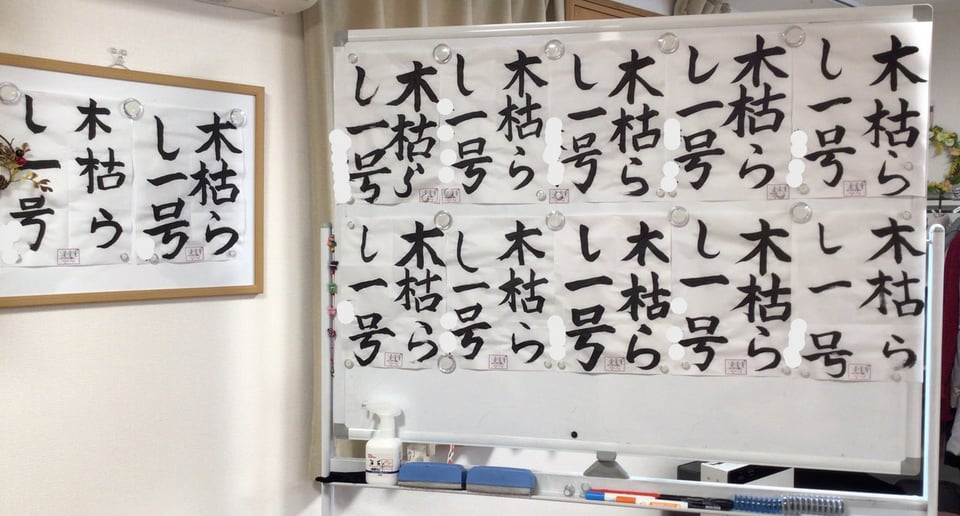 木枯ら
し一号
木枯ら
し一号
木枯ら
し一号
木枯ら
し一号
木枯ら
し一号
木枯ら
し一号
木枯ら
し一号
木枯ら
し一号
木枯ら
し一号
木枯ら
し一号
木枯ら
し一号
木枯ら
し一号